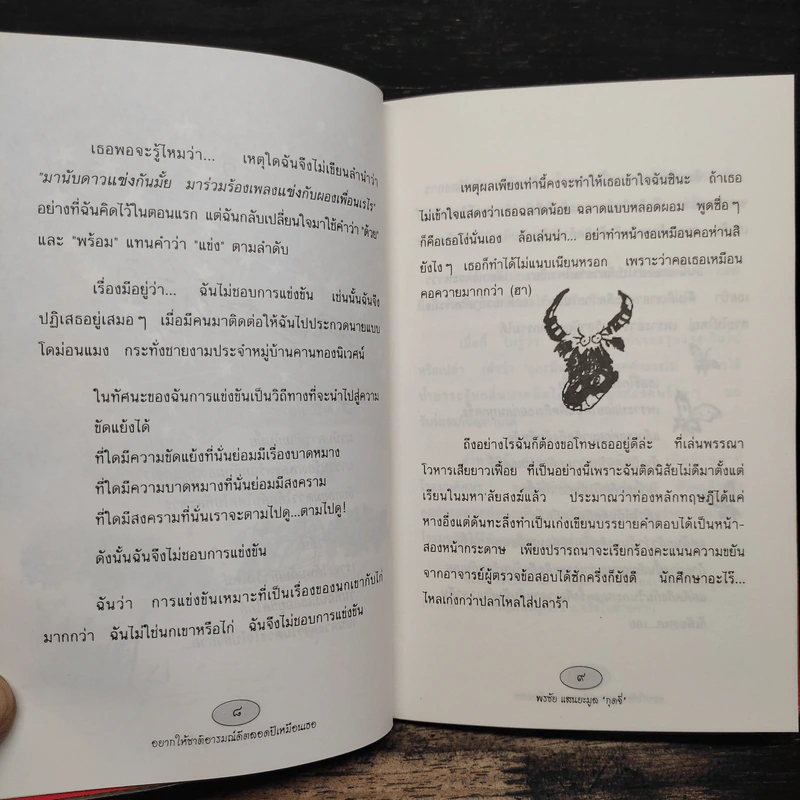 เธอพอจะรู้ไหมว่า... เหตุใดฉันจึงไม่เขียนลำนำว่า
"มานับดาวแข่งกันมั้ย มาร่วมร้องเพลงแข่งกับผองเพื่อนเรไร"
อย่างที่ฉันคิดไว้ในตอนแรก แต่ฉันกลับเปลี่ยนใจมาใช้คำว่า "ด้วย"
และ "พร้อม" แทนคำว่า "แข่ง" ตามลำดับ
เรื่องมีอยู่ว่า... ฉันไม่ชอบการแข่งขัน เช่นนั้นฉันจึง
ปฏิเสธอยู่เสมอๆ เมื่อมีคนมาติดต่อให้ฉันไปประกวดนายแบบ
โดม่อนแมง กระทั่งชายงามประจำหมู่บ้านคานทองนิเวศน์
ในทัศนะของฉันการแข่งขันเป็นวิถีทางที่จะนำไปสู่ความ
ขัดแย้งได้
ที่ใดมีความขัดแย้งที่นั่นย่อมมีเรื่องบาดหมาง
ที่ใดมีความบาดหมางที่นั่นย่อมมีสงคราม
ที่ใดมีสงครามที่นั่นเราจะตามไปดู...ตามไปดู!
ดังนั้นฉันจึงไม่ชอบการแข่งขัน
ฉันว่า การแข่งขันเหมาะที่เป็นเรื่องของนกเขากับไก่
มากกว่า ฉันไม่ใช่นกเขาหรือไก่ ฉันจึงไม่ชอบการแข่งขัน
๘
อยากให้ชาติอารมณ์ดีตลอดปีเหมือนเธอ
เหตุผลเพียงเท่านี้คงจะทำให้เธอเข้าใจฉันซินะ ถ้าเธอ
ไม่เข้าใจแสดงว่าเธอฉลาดน้อย ฉลาดแบบหลอดผอม พูดซื่อๆ
ก็คือเธอโง่นั่นเอง ล้อเล่นน่า... อย่าทำหน้างอเหมือนคอห่านสิ
ยังไงๆ เธอก็ทำได้ไม่แนบเนียนหรอก เพราะว่าคอเธอเหมือน
คอควายมากกว่า (ฮา)
ถึงอย่างไรฉันก็ต้องขอโทษเธออยู่ดีล่ะ ที่เล่นพรรณา
โวหารเสียยาวเฟื้อย ที่เป็นอย่างนี้เพราะฉันติดนิสัยไม่ดีมาตั้งแต่
เรียนในมหา'ลัยสงฆ์แล้ว ประมาณว่าท่องหลักทฤษฎีได้แค่
หางอึ่งแต่ดันทะลึ่งทำเป็นเก่งเขียนบรรยายคำตอบได้เป็นหน้า-
สองหน้ากระดาษ เพียงปรารถนาจะเรียกร้องคะแนนความขยัน
จากอาจารย์ผู้ตรวจข้อสอบได้ซักครึ่งก็ยังดี นักศึกษาอะไรี้...
ไหลเก่งกว่าปลาไหลใส่ปลาร้า
๙
พรชัย แสนยะมูล "กุดจี่"